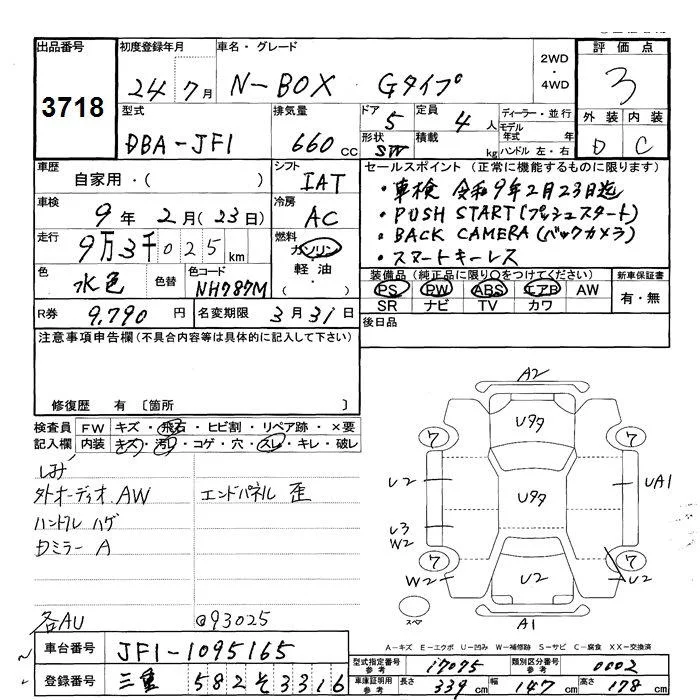 出品番号
3718
初度登録年月
24 7月
車名・グレード
N-BOX Gタイプ
2WD
・
4WD
評価点
3
外装 内装
D C
型式
DBA-JF1
排気量
660 cc
ドア
5
形状
SW
定員
4 人
積載
kg
ディーラー・並行
モデル
年式 年
ハンドル 左・右
車歴
自家用・( )
シフト
IAT
車検
9年 2月(23日)
冷房
AC
走行
9万3千025km
燃料
ガソリン
軽油・
( )
色
水色
色替
色コード
NH787M
R券
9,790 円
名変期限
3月31日
セールスポイント (正常に機能するものに限ります)
・車検 令和9年2月23日迄
・PUSH START(プッシュスタート)
・BACK CAMERA(バックカメラ)
・スマートキーレス
装備品(純正品に限り○をつけてください)
PS PW ABS エアB AW
SR ナビ TV カワ
新車保証書
有・無
後日品
注意事項申告欄(不具合内容等は具体的に記入して下さい)
修復歴 有 〔箇所 〕
検査員 FW キズ・飛石・ヒビ割・リペア跡・×要
記入欄 内装 キズ・汚れ・コゲ・穴・スレ・キレ・破レ
シミ
外オーディオ AW エンドパネル 歪
ハンドル ハゲ
Dミラー A
各AU @93025
A2
Uタタ
7 7
U2 UA1
Uタタ
U3
W2
7 7
W2 U2 U2
スペア
A1
A-キズ E-エクボ U-凹み W-補修跡 S-サビ C-腐食 XX-交換済
車台番号
JF1-1095165
登録番号
三重 582 そ 3316
型式指定番号
参考
17075
類別区分番号
参考
0002
車庫証明用
参考
長さ 339cm 幅 147cm 高さ 178cm